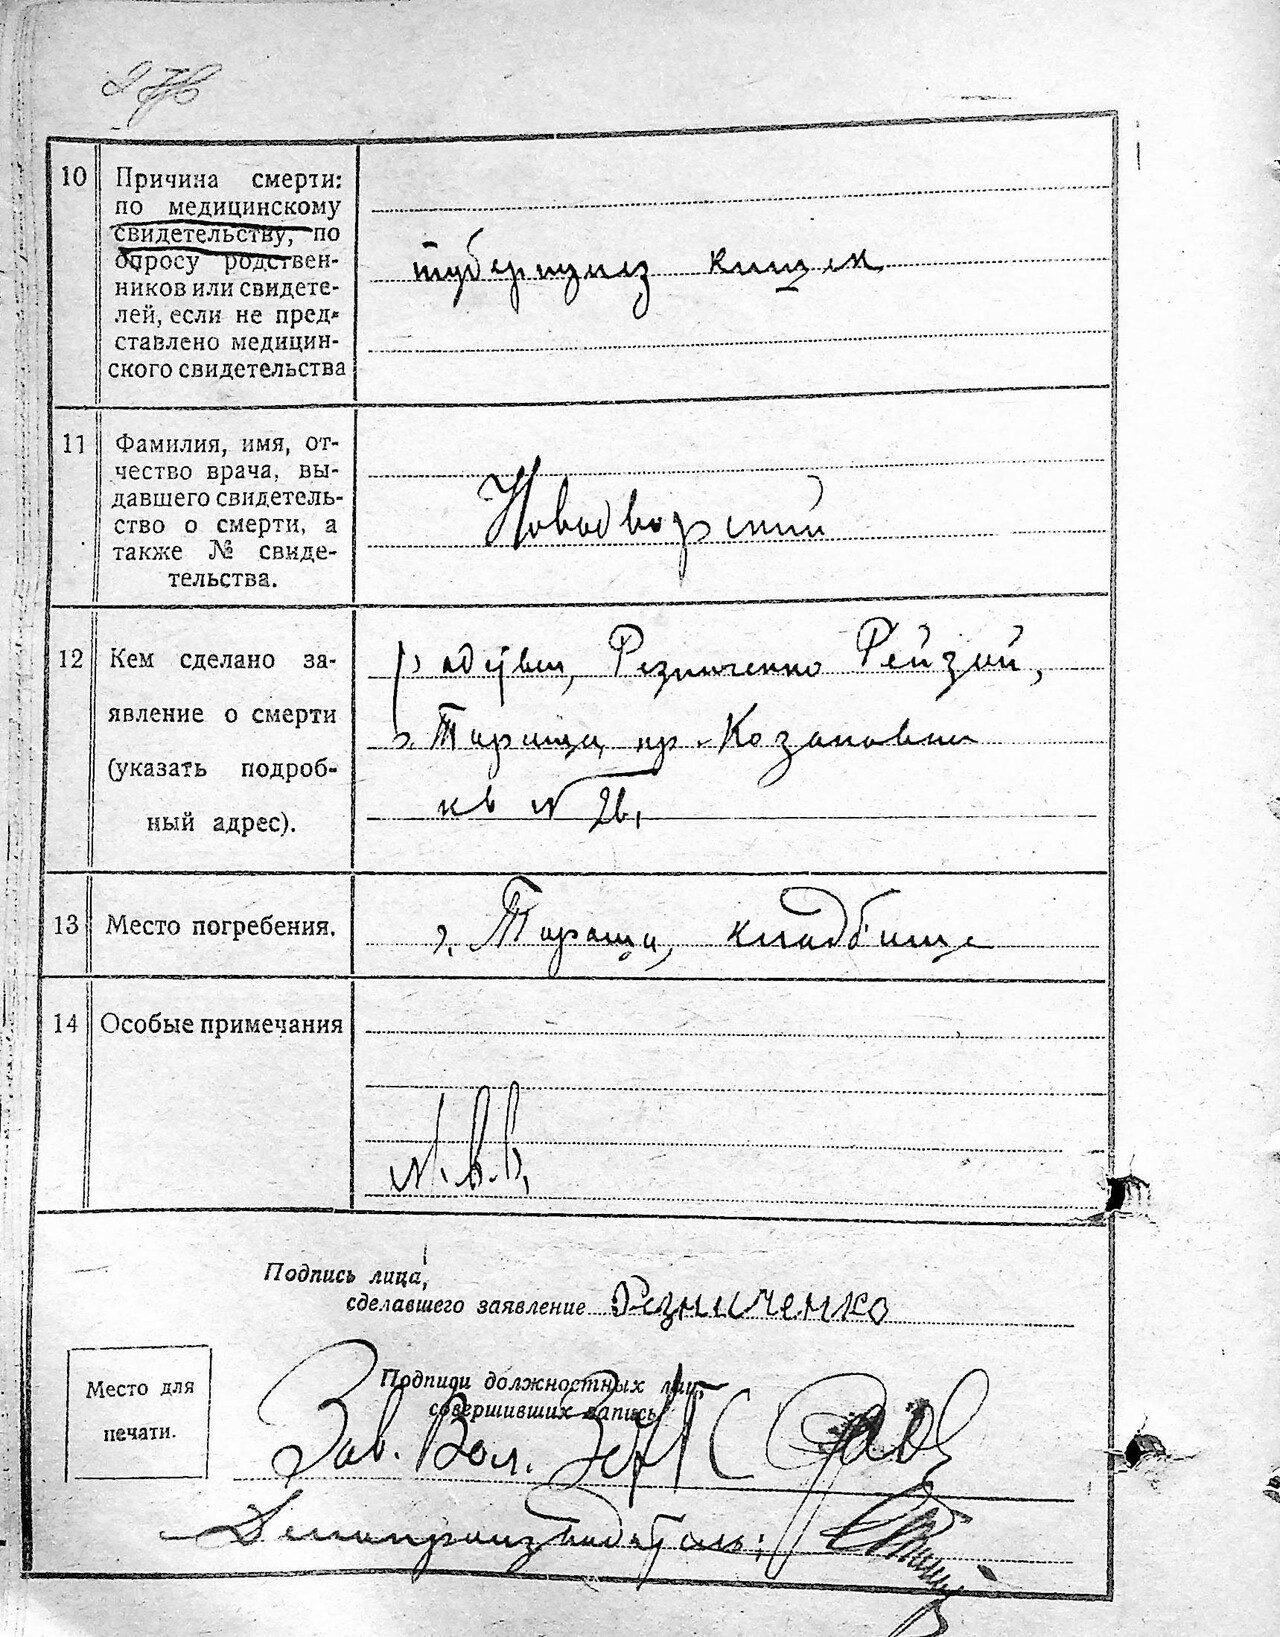 10
Причина смерти:
по медицинскому
свидетельству, по
опросу родствен-
ников или свидете-
лей, если не пред-
ставлено медицин-
ского свидетельства
туберкулез кишек
11
Фамилия, имя, от-
чество врача, вы-
давшего свидетель-
ство о смерти, а
также № свиде-
тельства.
Новодворский
12
Кем сделано за-
явление о смерти
(указать подроб-
ный адрес).
Резниченко Рейзой,
г. Тараща, пр.
кв №
13
Место погребения.
г. Тараща, кладбище
14
Особые примечания
Подпись лица,
сделавшего заявление Резниченко
Место для
печати.
Подписи должностных лиц,
совершивших запись
Зав. Вол.
Делопроизводитель: